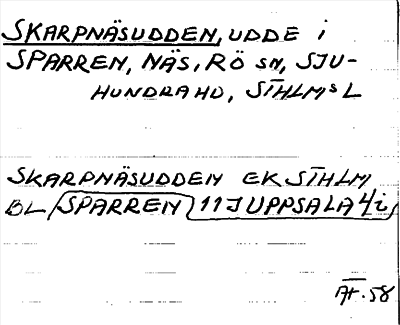 SKARPNÄSUDDEN, UDDE i
SPARREN, NÄS, RÖ SN, SJU-
HUNDRA HD, STHLMS L
SKARPNÄSUDDEN EK STHLM
BL SPARREN 11J UPPSALA 4/i
AT. 58